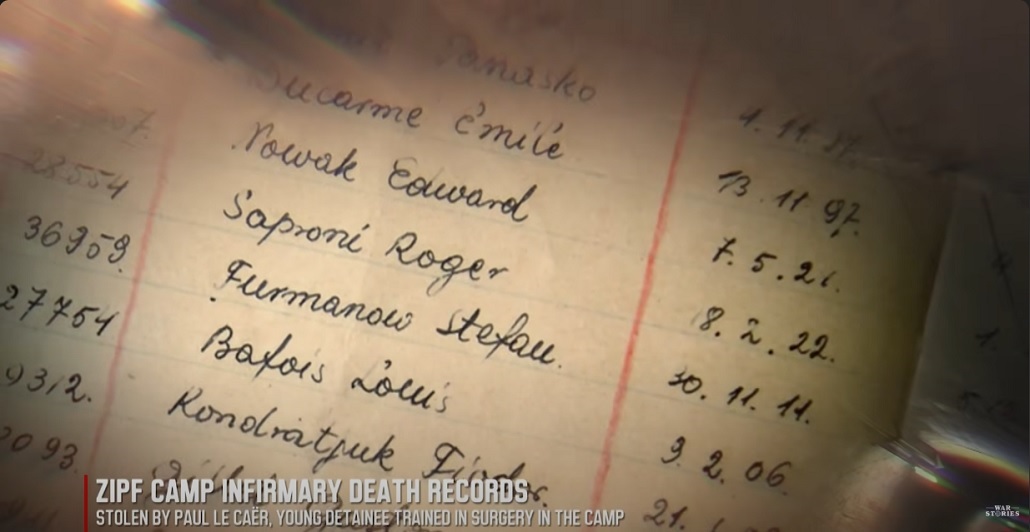 Panasko
Ducarme Émile 13.11.97.
Nowak Edward 7.5.21.
28554 Saproni Roger 8.2.22.
36959. Furmanow Stefan. 30.11.11.
27754 Bafois Louis 9.2.06
9312. Kondratjuk 21.
093.
ZIPF CAMP INFIRMARY DEATH RECORDS
STOLEN BY PAUL LE CAËR, YOUNG DETAINEE TRAINED IN SURGERY IN THE CAMP
WAR STORIES